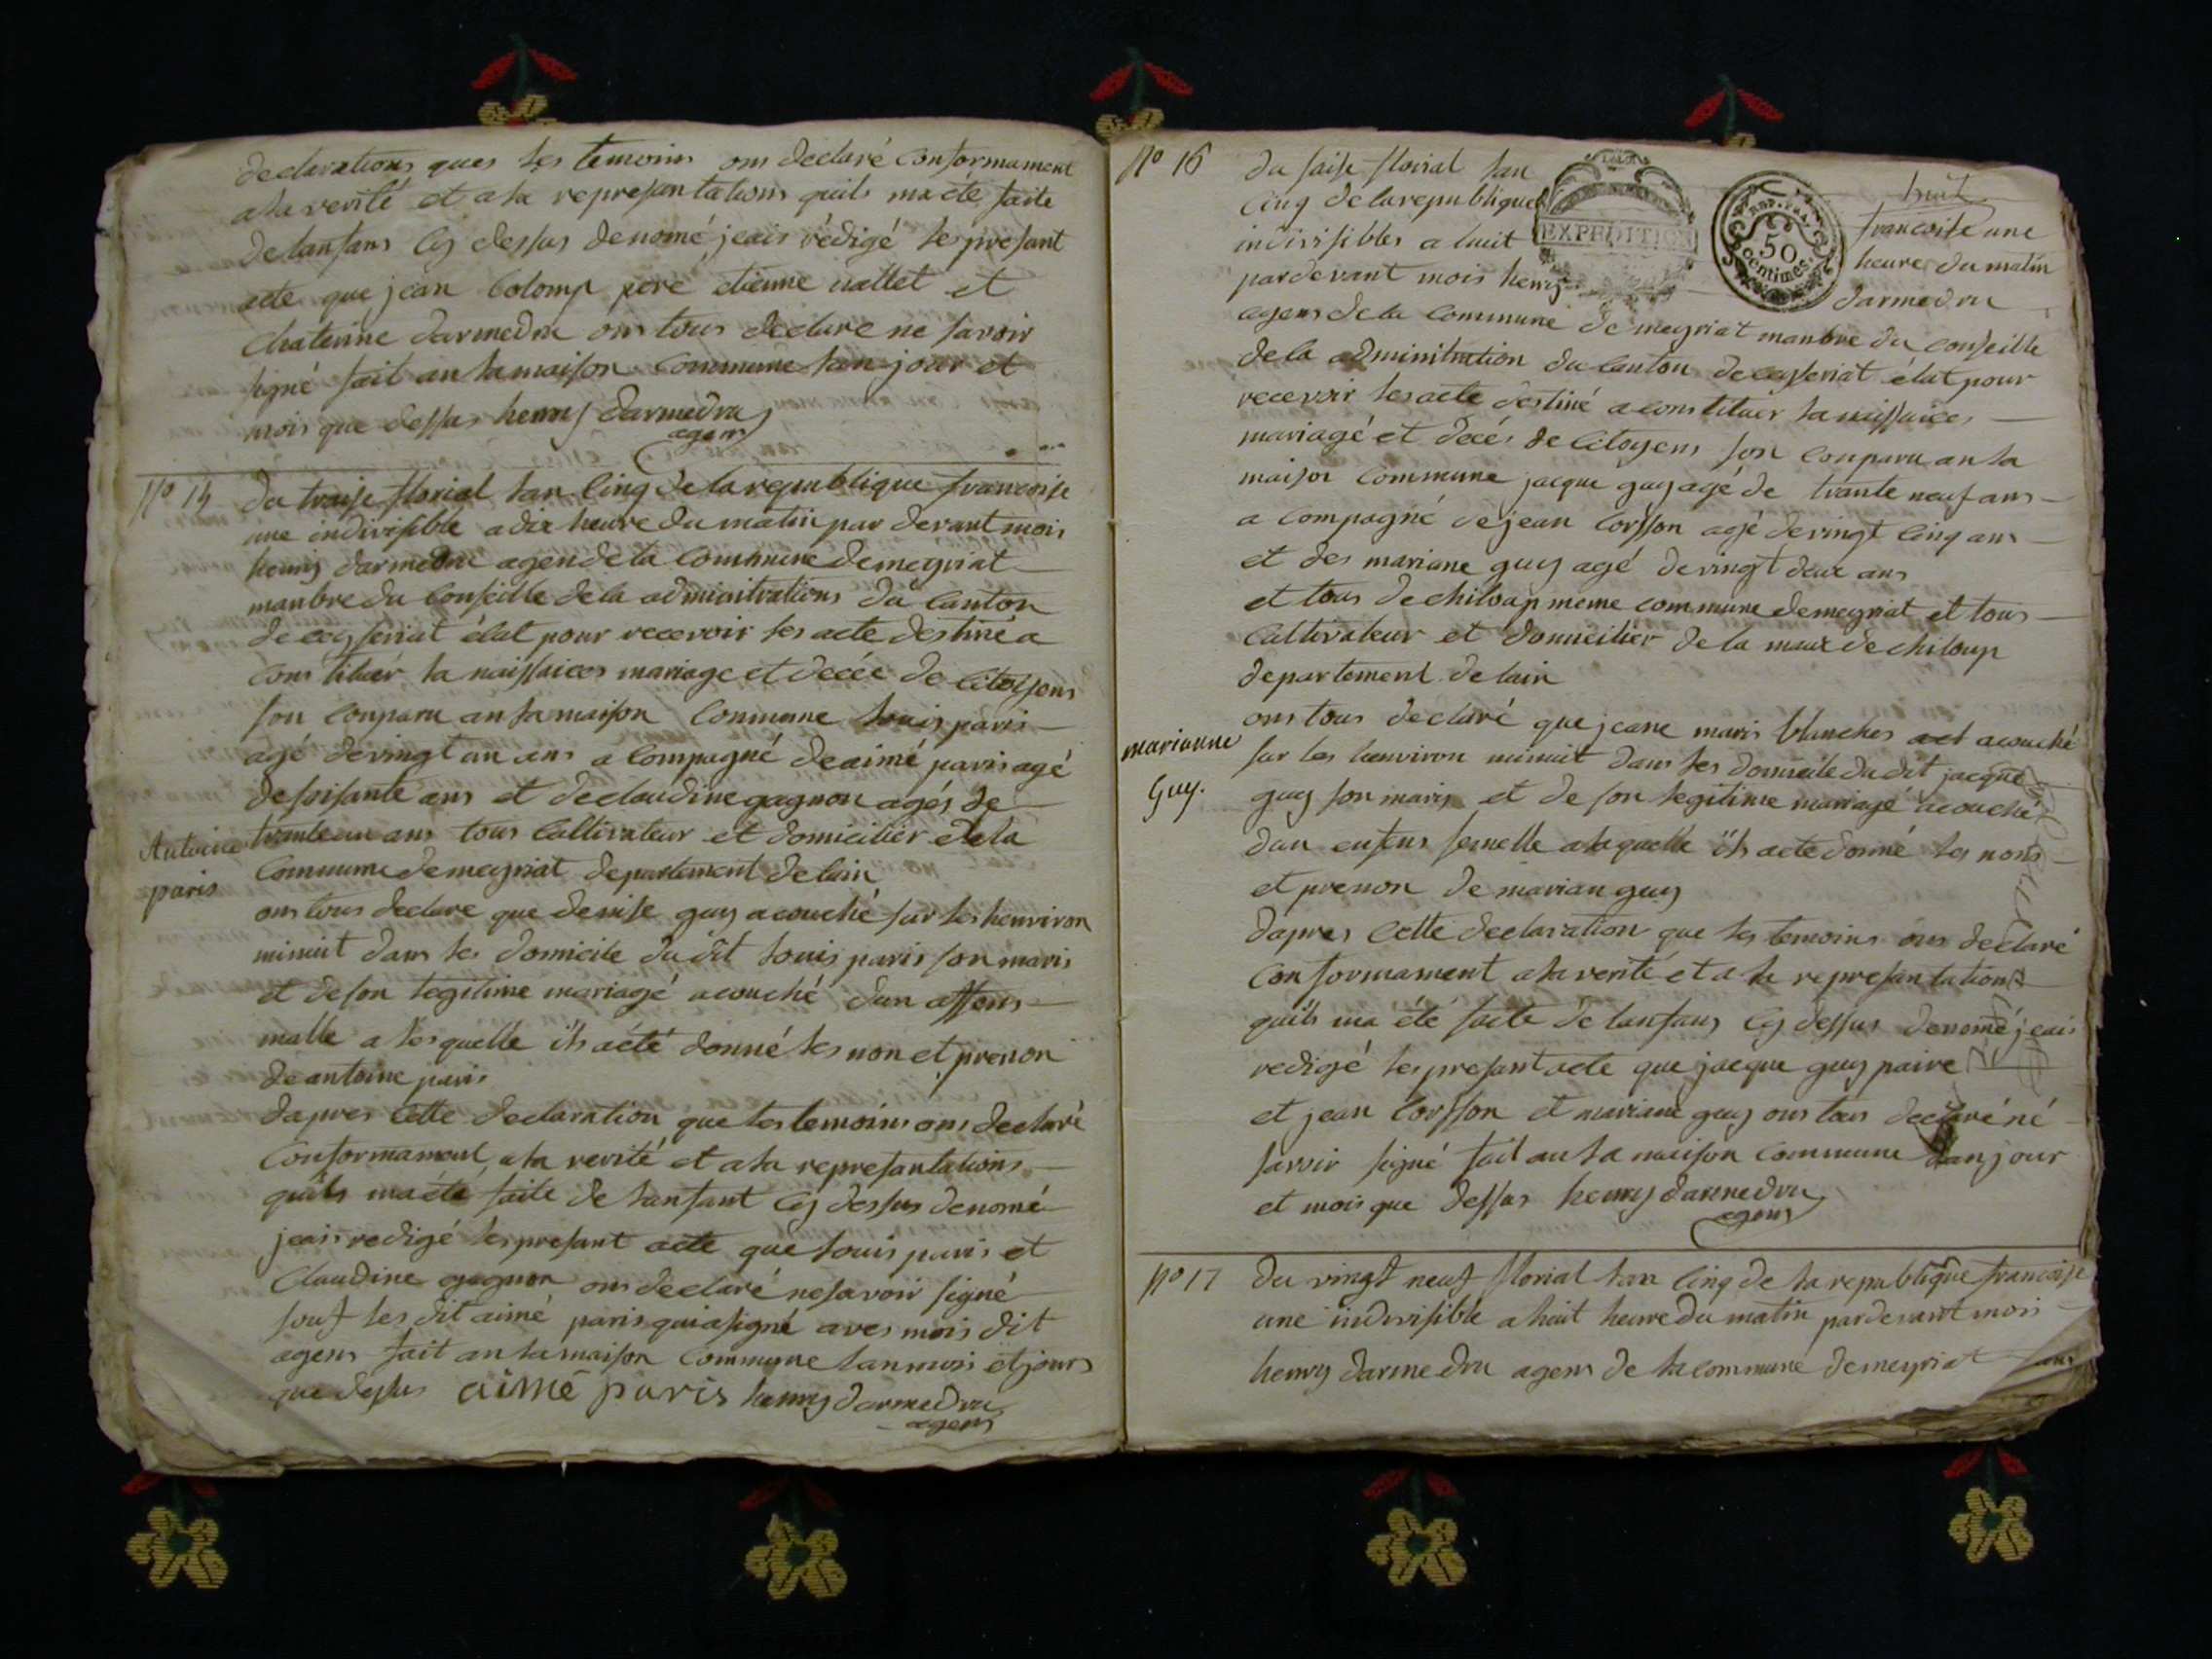 declarations ques les temoins ons declaré conformament
a la verité et a la represantations quils ma été faite
de lanfans cy dessus denomé jeais rédigé les presant
acte que jean Colomp pere etienne vallet et
Chaterine darmedru ons tous declare ne savoir
signé fait an la maison Commune lan jour et
mois que dessus henry darmedru
agens
No 14
du traise florial lan Cinq de la republique francoise
une indivisible a dix heure du matin par devant mois
henry darmedru agen de la Commune de meyriat
manbre du Conseille de la adminitrations du Canton
de ceyseriat élut pour recevoir les acte destiné a
Constituér la naissaices mariage et decée de Citoyens
son Conparu an la maison Commune louis paris
agé de vingt un ans a Compagné de aimé paris agé
de soisante ans et de claudine gagnon agés de
Antoine
paris
trante un ans tous Cultivateur et domicilier de la
Commune de meyriat departement de lain
ons tous declare que denise guy acouché sur les henviron
minuit dans les domicile dudit louis paris son maris
et de son legitime mariagé acouché dun affons
malle a les quelle ils aété donné les non et prenon
de antoine paris
dapres cette declaration que les temoins ons declaré
Conformament a la verité et a la represantations
quils ma été faite de lanfant Cy dessus denomé
jeais redigé les presant acte que louis paris et
Claudine gagnon ons declaré ne savoir signé
souf les dit aimé paris qui a signé aves mois dit
agens fait an la maison Commune lan mois et jours
que dessus aimé paris henry darmedru
agens
No 16
du saise floirial lan
huit
Cinq de la republique
francoise une
indivisibles a huit
heure du matin
pardevant mois henry
darmedru
EXPEDITION
REP. FRA.
50
centimes.
agens de la Commune de meyriat manbre du Conseille
de la adminitration du Canton de ceyseriat élut pour
recevoir les acte destiné a constituér la naissaices
mariagé et decés de Citoyens son Conparu an la
maison Commune jacque guy agé de trante neuf ans
a Compagné de jean Corsson agé de vingt Cinq ans
et des mariane guy agé de vingt deux ans
et tous de chiloup meme commune de meyriat et tous
Cultivateur et domicilier de la maux de chiloup
departement de lain
marianne
Guy.
ons tous declaré que jeane maris blanches acouché
sur les henviron minuit dans les domicile dudit jacque
guy son maris et de son legitime mariagé acouché
dun enfens femelle a laquelle ils acte donné les nons
et prenon de marian guy
dapres Cette declaration que les temoins ons declaré
Conformament a la verité et a la represantations
quils ma été faite de lanfans Cy dessus denomé jeais
redigé les presant acte que jacque guy paire
et jean Corsson et mariane guy ons tous declaré né
savoir signé fait an la maison Commune lan jour
et mois que dessus henry darmedru
agens
No 17
du vingt neuf florial lan Cinq de la republique francoise
une indivisible a huit heure du matin pardevant mois
henry darmedru agens de la commune de meyriat